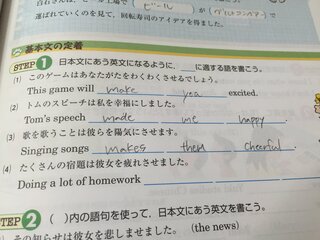 白石さんは、ビール工場で ( ビール ) が (
運ばれていくのを見て、回転寿司のアイデアを得ました。
基本文の定着
STEP 1 日本文にあう英文になるように、 に適する語を書こう。
(1) このゲームはあなたがたをわくわくさせるでしょう。
This game will make you excited.
(2) トムのスピーチは私を幸福にしました。
Tom's speech made me happy.
(3) 歌を歌うことは彼らを陽気にさせます。
Singing songs makes then cheerful.
(4) たくさんの宿題は彼女を疲れさせました。
Doing a lot of homework
STEP 2 ( )内の語句を使って、日本文にあう英文を書こう。
その知らせは彼女を悲しませました。 (the news)